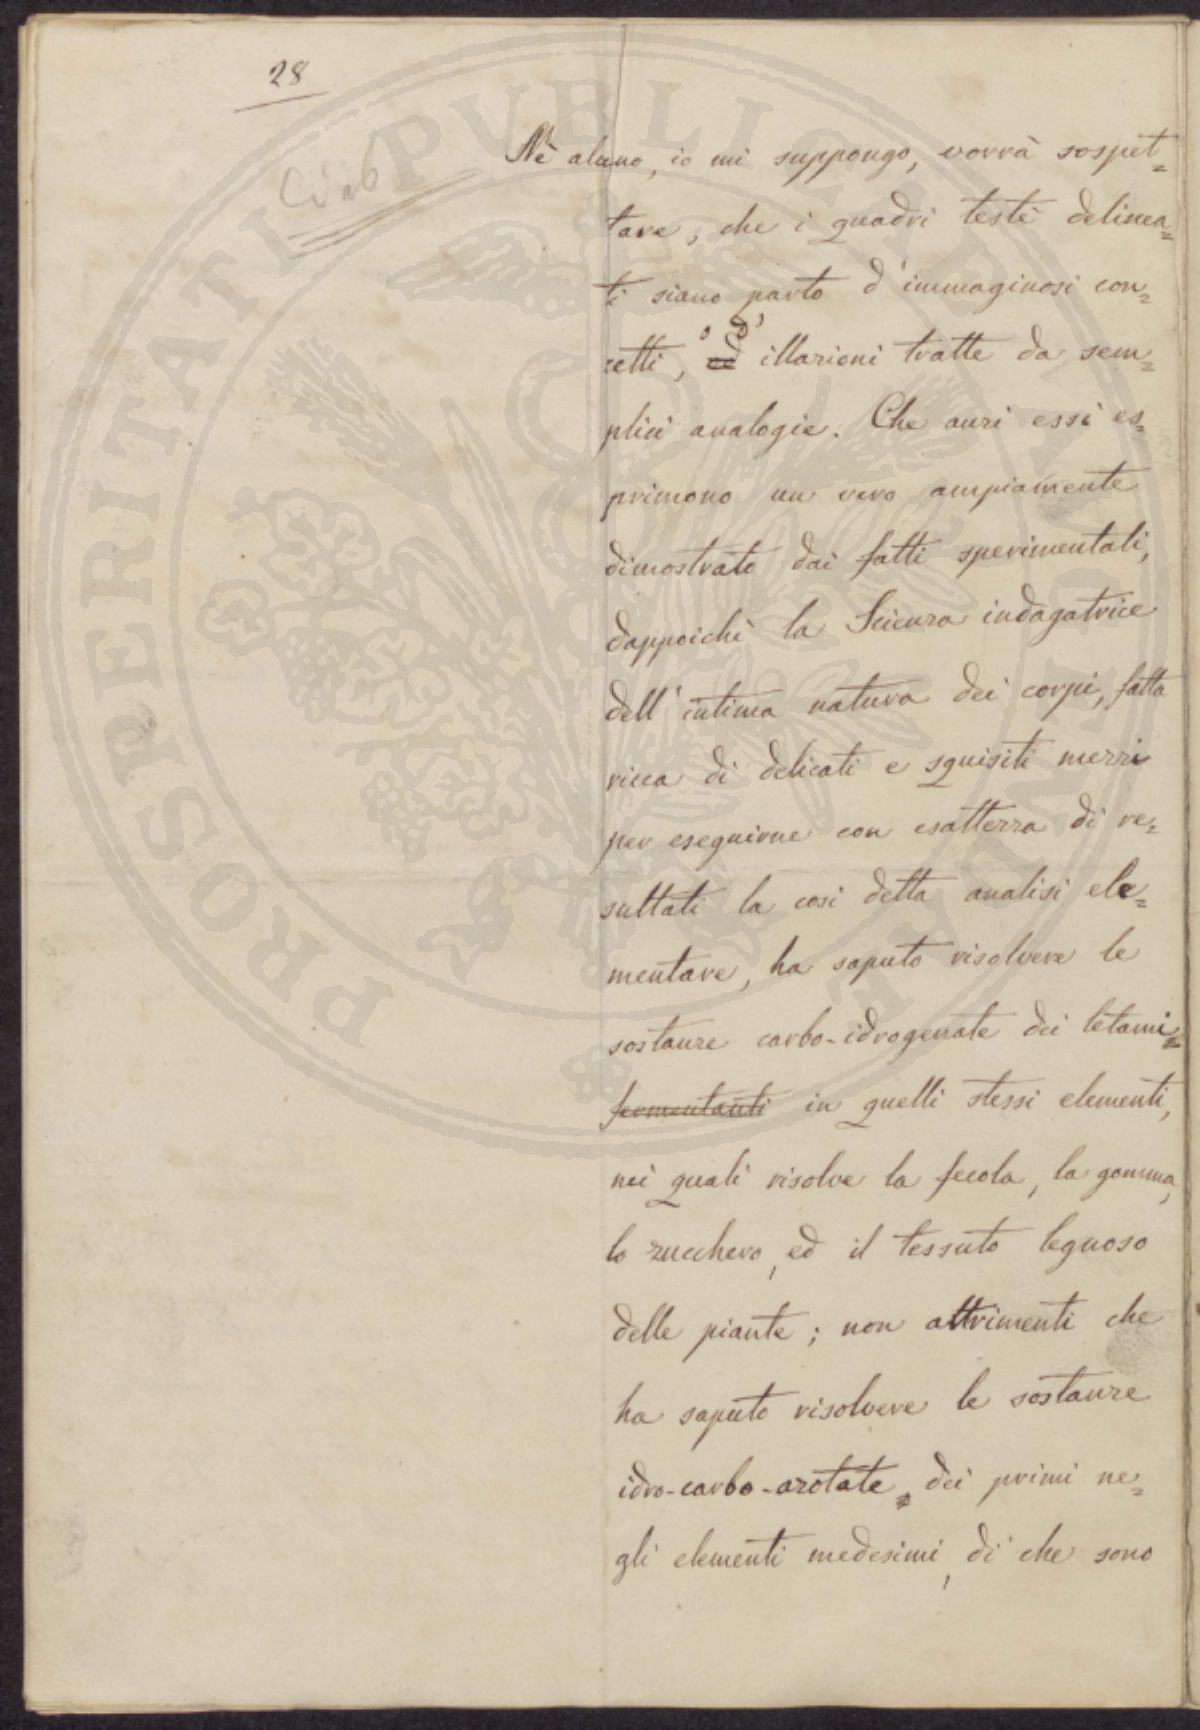 28
Nè alcuno, io mi suppongo, vorrà sospet=
tare, che i quadri testè delinea=
ti siano parto d'immaginosi con=
cetti, o d' illazioni tratte da sem=
plici analogie. Che anzi essi es=
primono un vero ampiamente
dimostrato dai fatti sperimentali,
dappoichè la Scienza indagatrice
dell'intima natura dei corpi, fatta
ricca di delicati e squisiti mezzi
per eseguirne con esattezza di re=
sultati la così detta analisi ele=
mentare, ha saputo risolvere le
sostanze carbo-idrogenate dei letami
fermentanti in quelli stessi elementi,
nei quali risolve la fecola, la gomma,
lo zucchero, ed il tessuto legnoso
delle piante; non altrimenti che
ha saputo risolvere le sostanze
idro-carbo-azotate dei primi ne=
gli elementi medesimi, di che sono
PROSPERITATI PUBLICAE